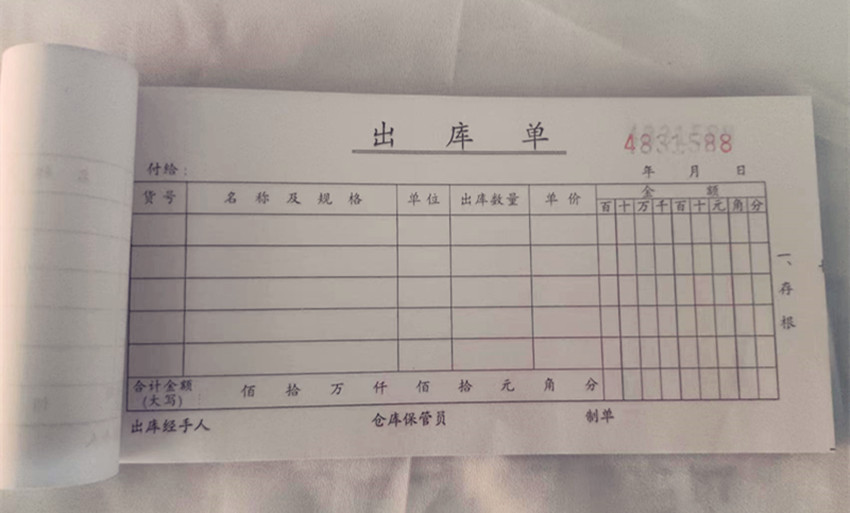 出库单
4831588
付给: 年 月 日
货号 名称及规格 单位 出库数量 单价 金额
百十万千百十元角分
一、存根
合计金额 佰 拾 万 仟 佰 拾 元 角 分
(大写)
出库经手人 仓库保管员 制单